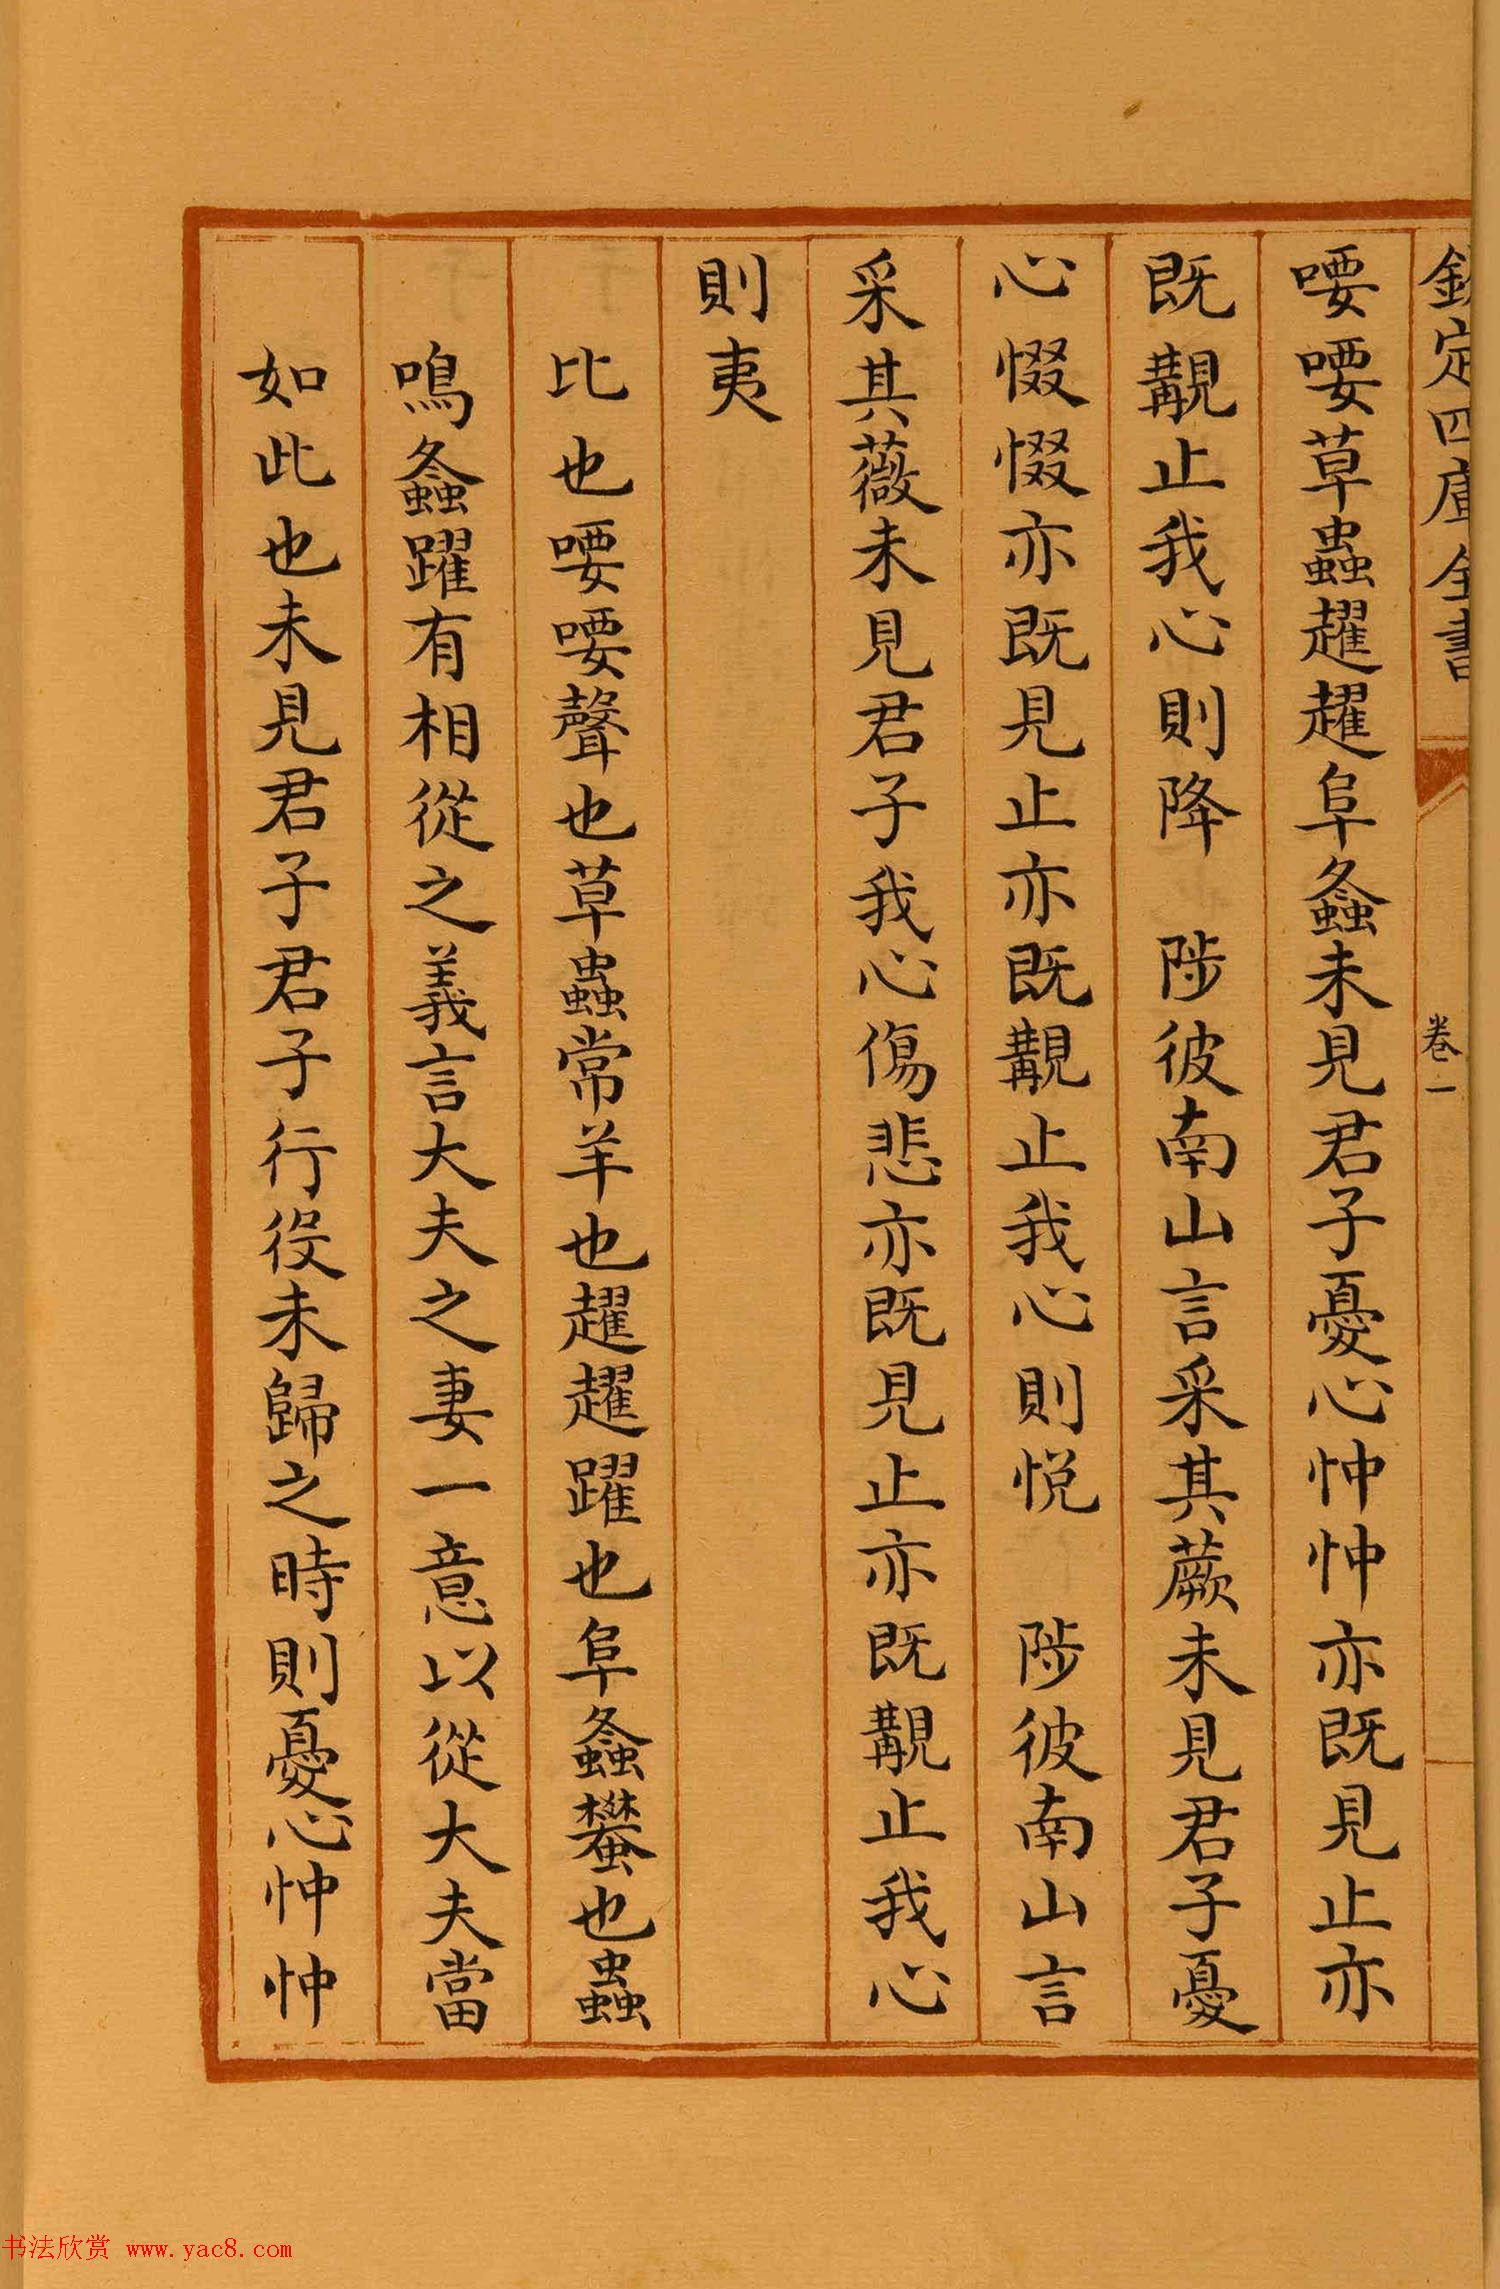 欽定四庫全書
卷一
喓喓草蟲趯趯阜螽未見君子憂心忡忡亦既見止亦
既覯止我心則降　陟彼南山言采其蕨未見君子憂
心惙惙亦既見止亦既覯止我心則悅　陟彼南山言
采其薇未見君子我心傷悲亦既見止亦既覯止我心
則夷
比也喓喓聲也草蟲常羊也趯趯躍也阜螽蠜也蟲
鳴螽躍有相從之義言大夫之妻一意以從大夫當
如此也未見君子君子行役未歸之時則憂心忡忡
书法欣赏 www.yac8.com